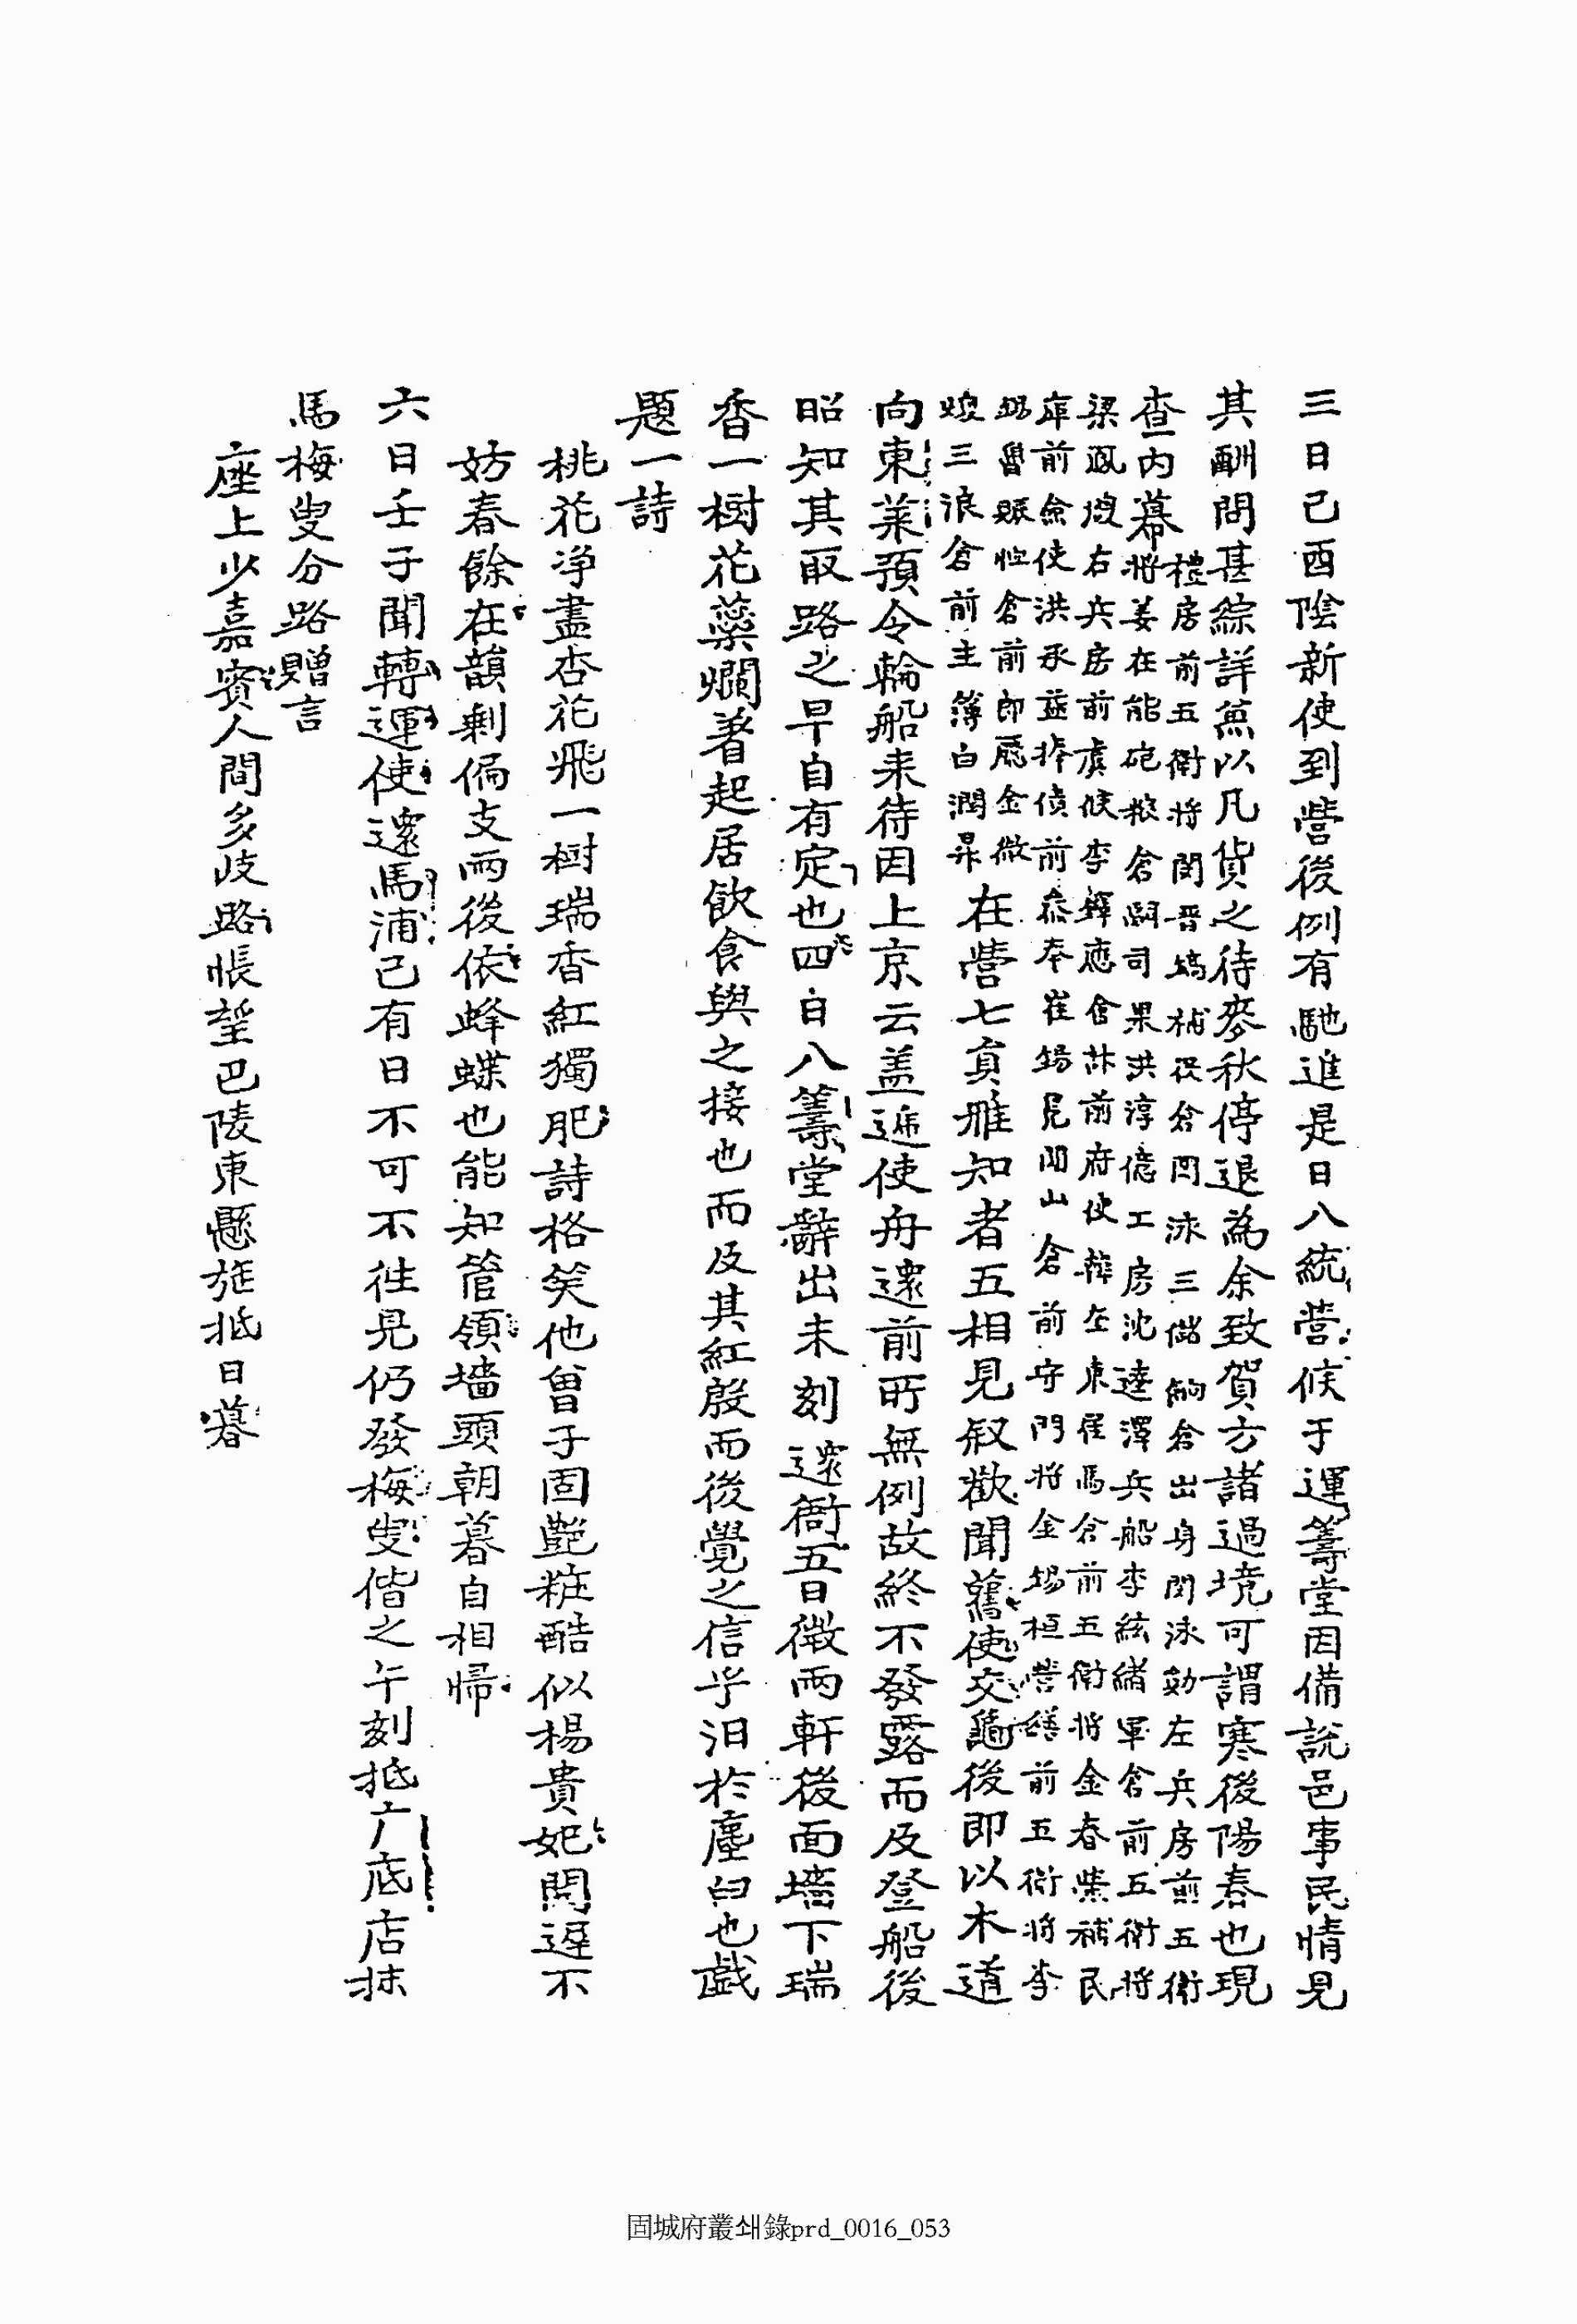 三日己酉陰新使到營後例有馳進是日八統營候于運籌堂因備說邑事民情見
其酬問甚綜詳兼以凡貨之待麥秋停退為余致賀方諸過境可謂寒後陽春也現
查內幕
禮房前五衛將閔晋鎬補役倉閔泳三儲餉倉出身閔泳勳左兵房前五衛
將姜在能砲粮倉嗣司果洪淳億工房沈達澤兵船李鉉緖軍倉前五衛將
梁 右兵房前虞候李鐸應會 前府使 左東 馬倉前五衛將金春榮補民
庫前僉使洪承益捧債前參奉崔錫 山倉前守門將金錫桓營繕前五衛將李
魯 倉前郎廳金 三浪倉前主簿白潤昇
在營七負雅知者五相見叙歡聞舊使交龜後即以木道
向東萊預令輪船来待因上京云盖遞使舟還前所無例故終不發露而及登船後
昭知其取路之早自有定也四日八籌堂辭出未刻還衙五日微雨軒後面墻下瑞
香一樹花蘂爛著起居飮食與之接也而及其紅殷而後覺之信乎汨於塵臼也戱
題一詩
桃花净盡杏花飛一樹瑞香紅獨肥詩格矣他曾子固艶粧酷似楊貴妃開遲不
妨春餘在韻剩偏支雨後依蜂蝶也能知管領墻頭朝暮自相歸
六日壬子聞轉運使還馬浦已有日不可不徃見仍發梅叟偕之午刻抵广底店抹
馬梅叟分路贈言
座上少嘉賓人間多歧路悵望巴陵東懸旌抵日暮
固城府叢쇄錄prd_0016_053